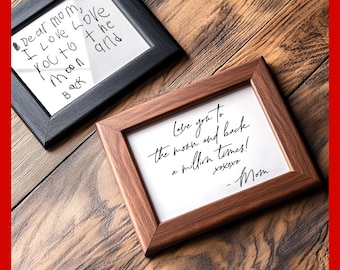 Dear mom,
I Love Love
you to the
moon and
Back
Love you to
the moon and back
a million times!
xoxoxo
- Mom